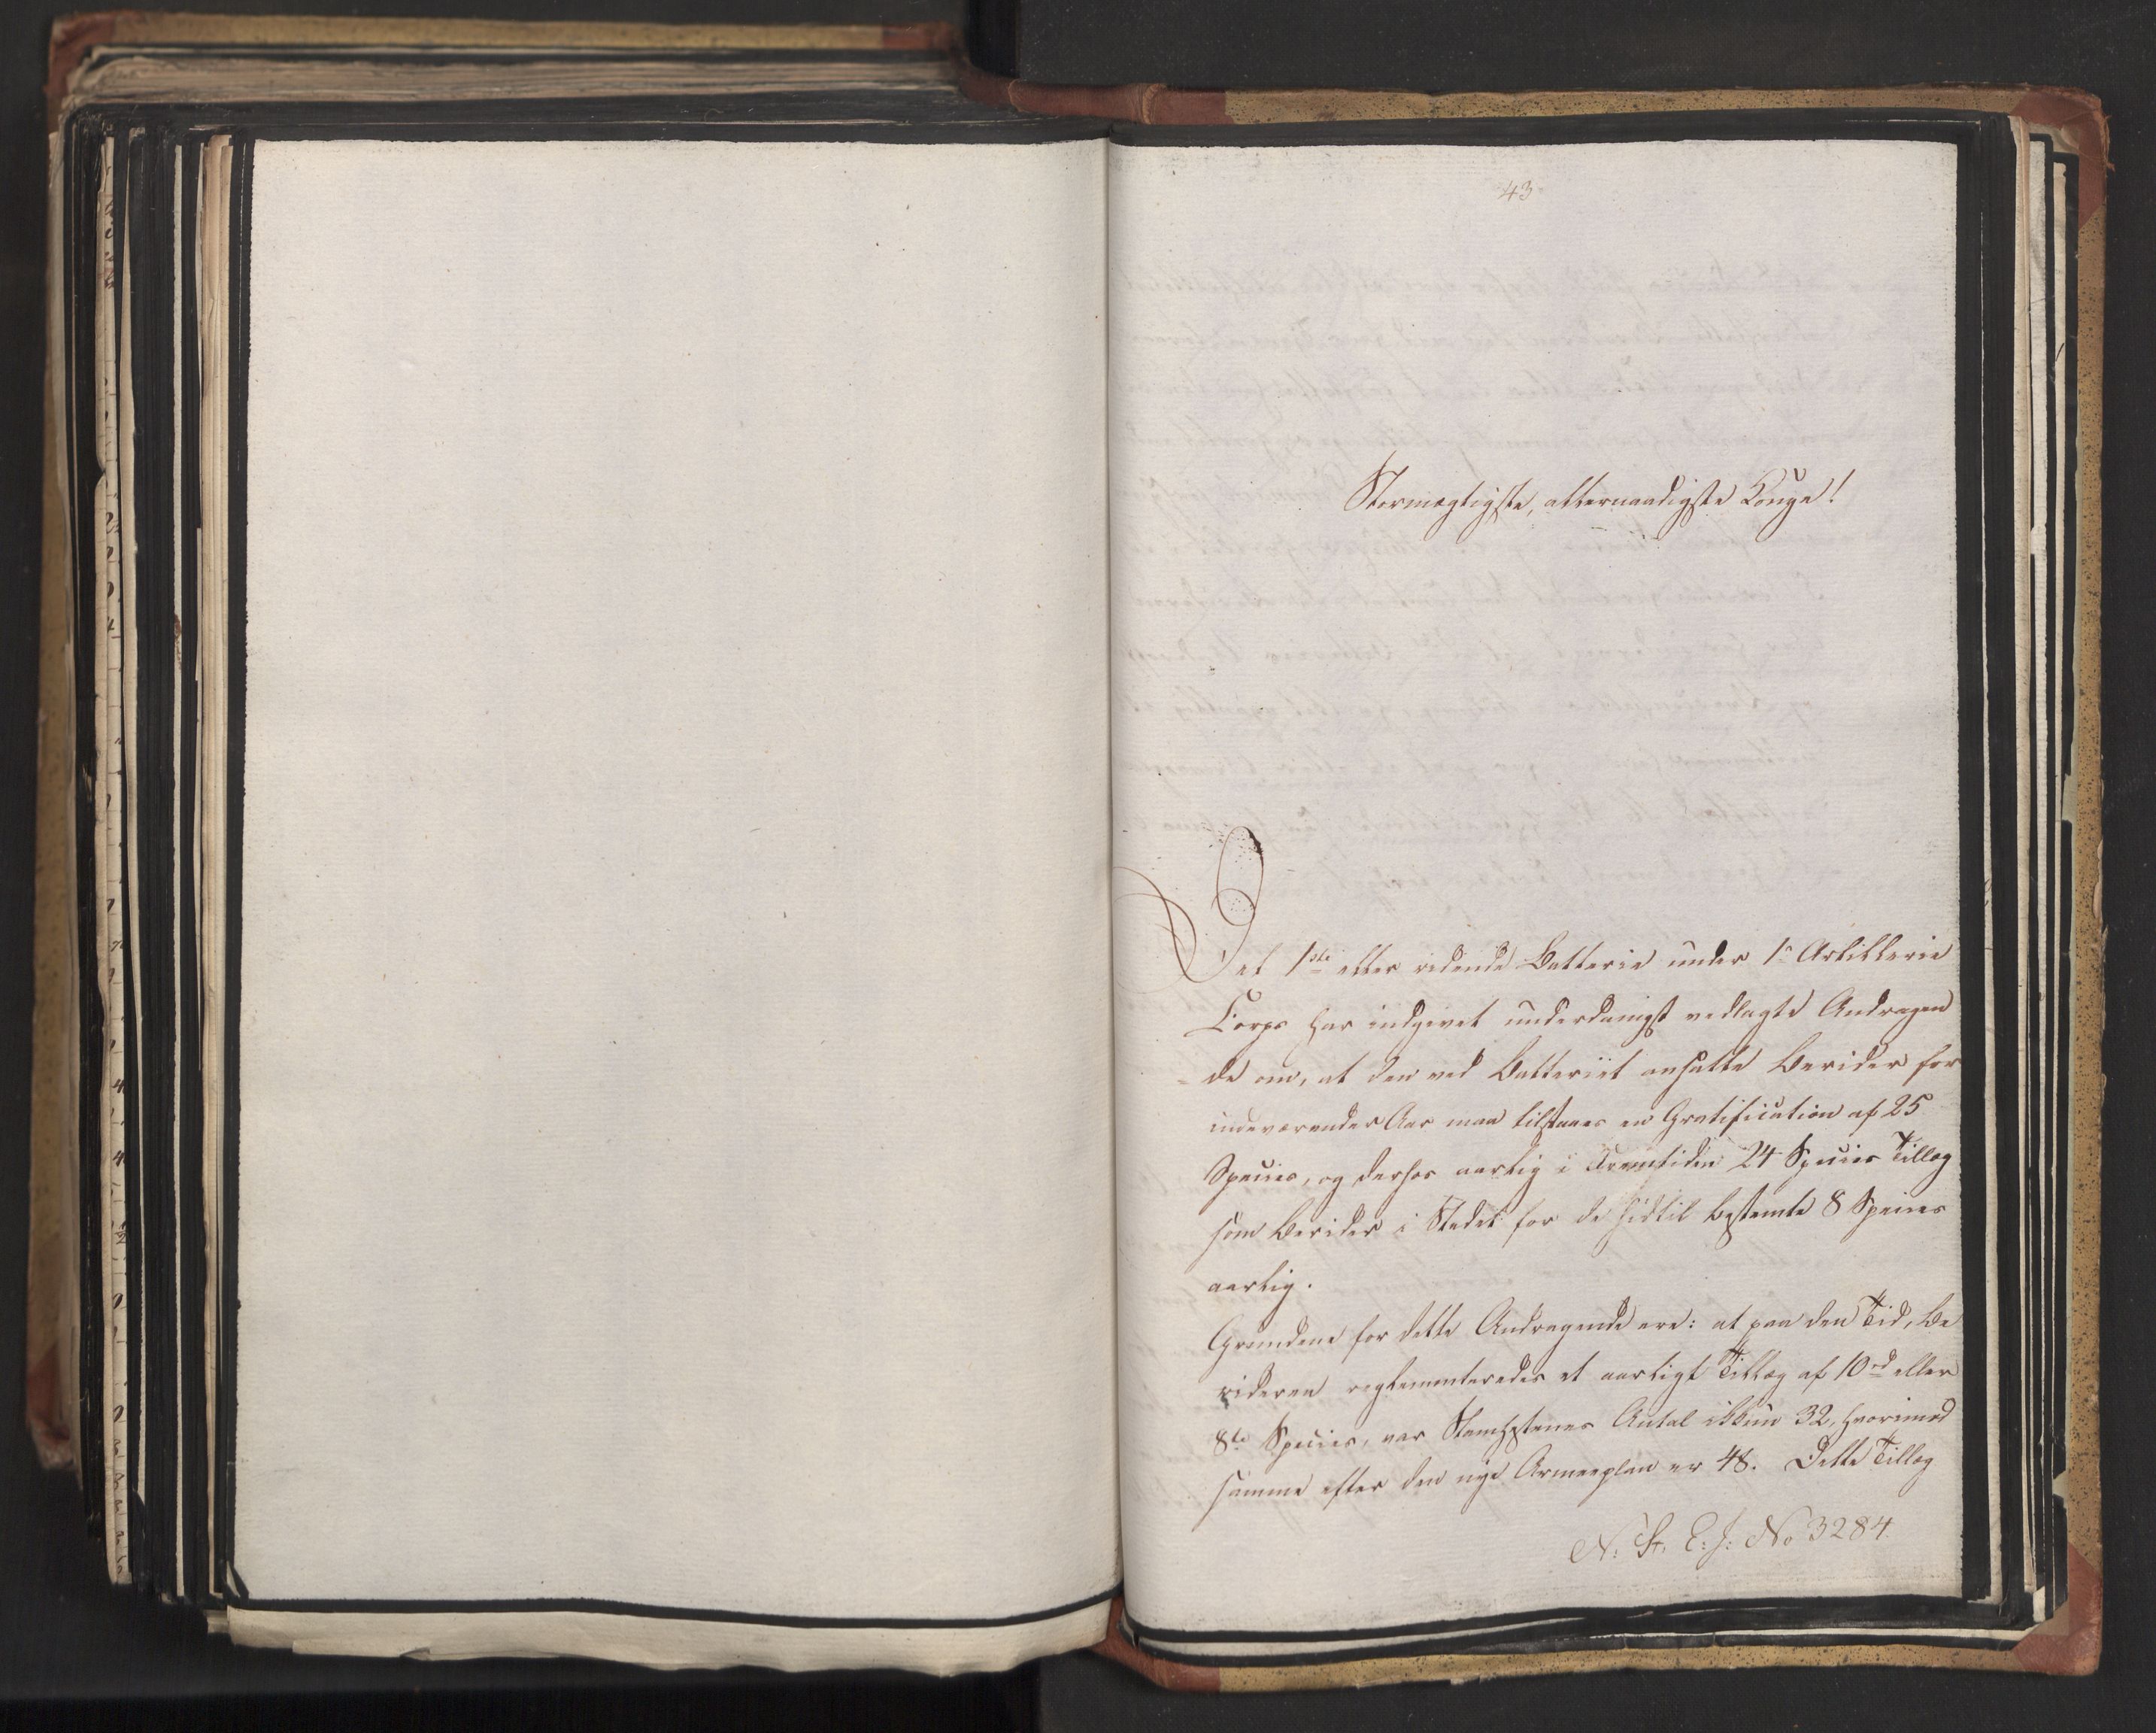 43
Stormægtigste, allernaadigste Konge!
Det 1ste eller ridende Batterie under 1s Artillerie
Corps har indgivet underdanigst vedlagte Andragen
de om, at den ved Batteriet ansatte Berider for
indeværende Aar maa tilstaaes en Gratification af 25
Species, og derhos aarlig i Fremtiden 24 Species Tillæg
som Berider i Stedet for de hidtil bestemte 8 Species
aarlig.
Grundene for dette Andragende ere: at paa den Tid, Be
rideren reglementeredes et aarligt Tillæg af 10rd eller
8te Species, var Stamhestenes Antal ikkun 32, hvorimod
samme efter den nye Armeeplan er 48. Dette Tillæg
N: St. E: J: No 3284.